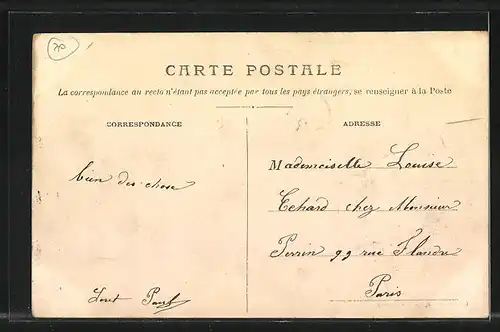 70
CARTE POSTALE
La correspondance au recto n'étant pas acceptée par tous les pays étrangers, se renseigner à la Poste
CORRESPONDANCE
bien des chose
Loret Paul
ADRESSE
Mademoiselle Louise
Echard chez Monsieur
Perrin 99 rue Flandre
Paris